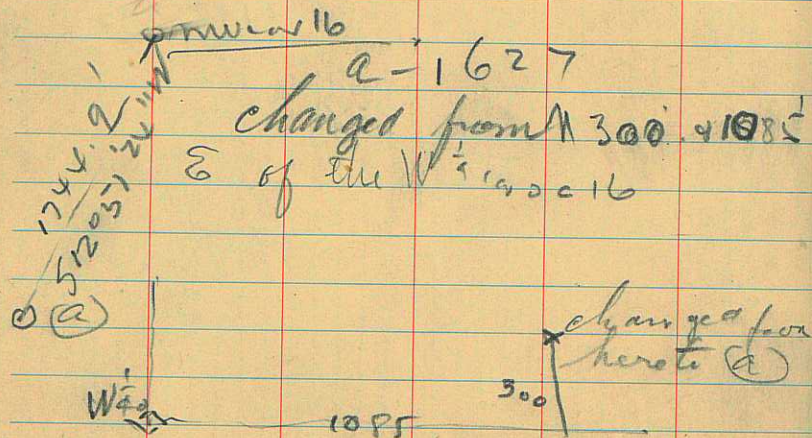 NW cor 16
a-1627
changed from N 300' & 1085'
E of the W 1/4 cor Sec 16
1744.2'
S 12° 57' 24" W
(a)
changed from
here to (a)
300
W 1/4
1085